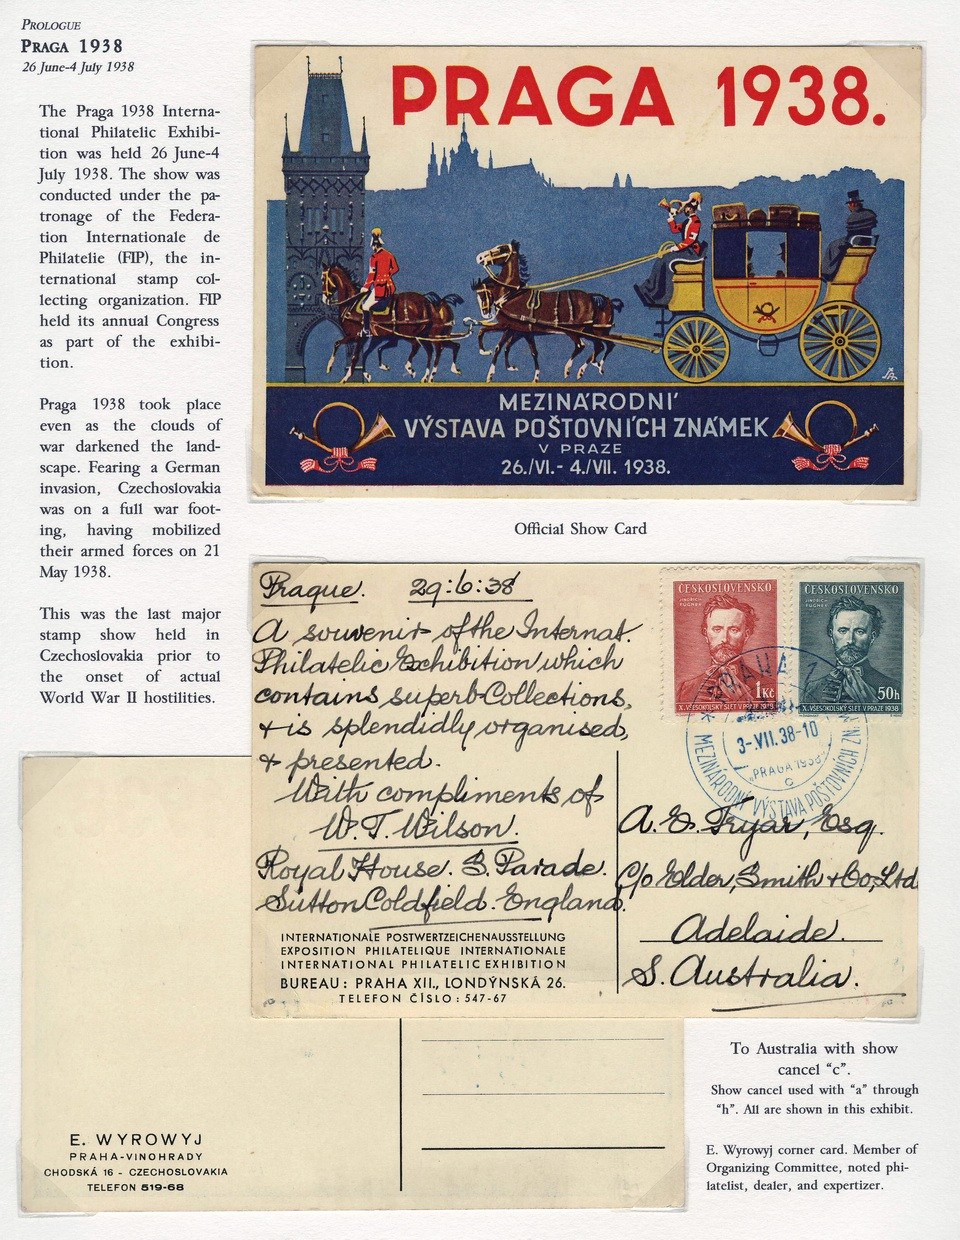 PROLOGUE
PRAGA 1938
26 June-4 July 1938
The Praga 1938 Interna-
tional Philatelic Exhibi-
tion was held 26 June-4
July 1938. The show was
conducted under the pa-
tronage of the Federa-
tion Internationale de
Philatelie (FIP), the in-
ternational stamp col-
lecting organization. FIP
held its annual Congress
as part of the exhibi-
tion.
Praga 1938 took place
even as the clouds of
war darkened the land-
scape. Fearing a German
invasion, Czechoslovakia
was on a full war foot-
ing, having mobilized
their armed forces on 21
May 1938.
This was the last major
stamp show held in
Czechoslovakia prior to
the onset of actual
World War II hostilities.
PRAGA 1938.
MEZINÁRODNÍ
VÝSTAVA POŠTOVNÍCH ZNÁMEK
V PRAZE
26./VI.- 4./VII. 1938.
Official Show Card
Prague. 29:6:38
A souvenir of the Internat.
Philatelic Exhibition which
contains superb Collections,
& is splendidly organised,
& presented.
With compliments of
W. T. Wilson.
Royal House. S. Parade.
Sutton Coldfield. England.
INTERNATIONALE POSTWERTZEICHENAUSSTELLUNG
EXPOSITION PHILATELIQUE INTERNATIONALE
INTERNATIONAL PHILATELIC EXHIBITION
BUREAU: PRAHA XII., LONDÝNSKÁ 26.
TELEFON ČÍSLO: 547-67
ČESKOSLOVENSKO
JINDŘICH
FÜGNER
1Kč
X. VŠESOKOLSKÝ SLET V PRAZE 1938
ČESKOSLOVENSKO
JINDŘICH
FÜGNER
50h
X. VŠESOKOLSKÝ SLET V PRAZE 1938
PRAHA 1
3-VII.38-10
„PRAGA 1938"
c
MEZINÁRODNÍ VÝSTAVA POŠTOVNÍCH ZN.
A. E. Fryar, Esq.
C/o Elder, Smith & Co, Ltd
Adelaide.
S. Australia.
E. WYROWYJ
PRAHA-VINOHRADY
CHODSKÁ 16 - CZECHOSLOVAKIA
TELEFON 519-68
To Australia with show
cancel “c”.
Show cancel used with “a” through
“h”. All are shown in this exhibit.
E. Wyrowyj corner card. Member of
Organizing Committee, noted phi-
latelist, dealer, and expertizer.